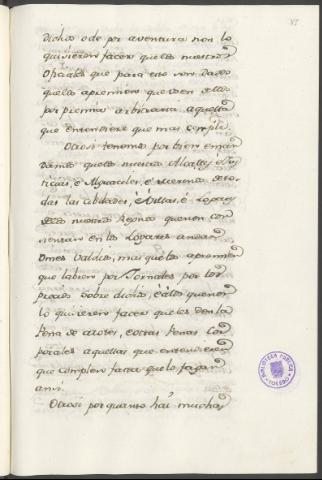 dichos ó de por aventura non lo
quisieren facer que los nuestros
Oficiales que para esto son Dados
que los apremien que den ellos
por premia arbitraria aquella
que entendiere que mas cumple.
Otrosi tenemos por bien é man
damos que los nuestros Alcalles é Jus
ticias, é Alguaciles, é Merinos de to
das las cibdades, é Villas, é Logares
de los nuestros Reynos que non con
sientan en los Logares andar
Omes Valdios, mas que los apremien
que labren por Jornales por los
precios sobre dichos, é á los que non
lo quisieren facer que les den la
Pena de azotes, é otras Penas Cor
porales aquellas que entendieren
que cumplen facer que lo fagan
ansi.
Otrosi por quanto hai muchos
BIBLIOTECA PUBLICA
TOLEDO